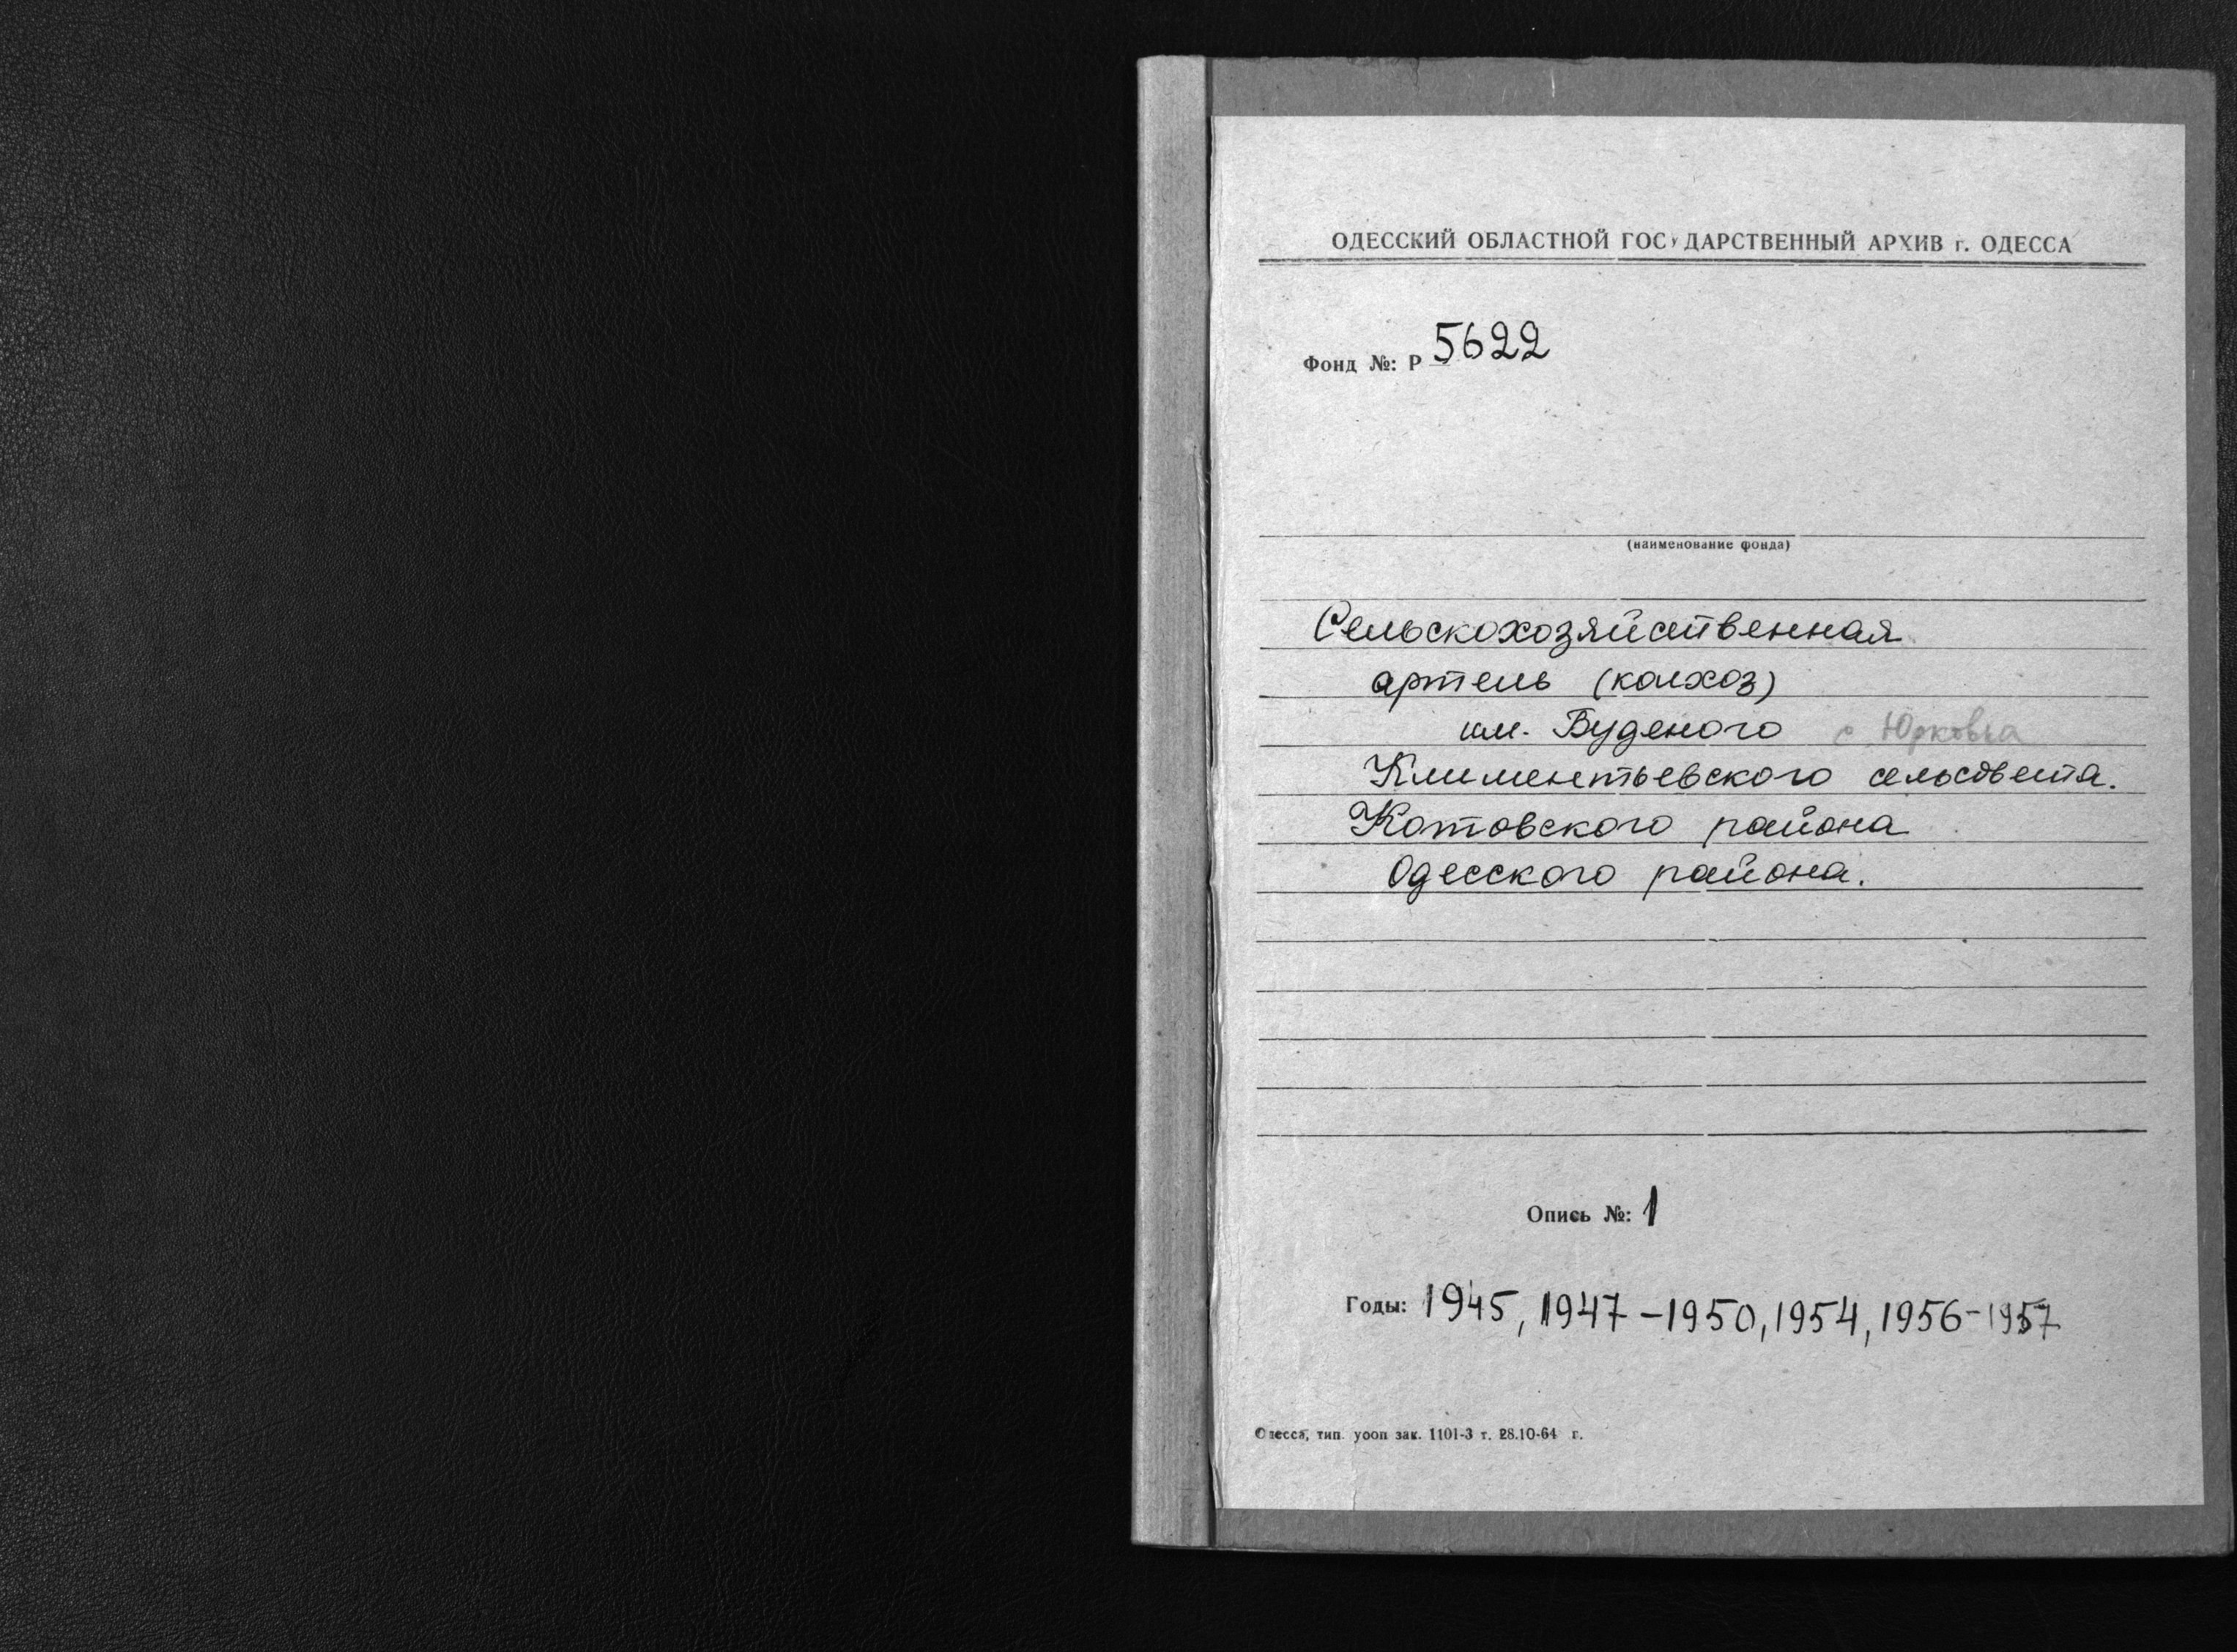 ОДЕССКИЙ ОБЛАСТНОЙ ГОСУДАРСТВЕННЫЙ АРХИВ г. ОДЕССА
Фонд №: Р 5622
(наименование фонда)
Сельскохозяйственная
артель (колхоз)
им. Буденого с. Юрковка
Климентьевского сельсовета.
Котовского района
Одесского района.
Опись №: 1
Годы: 1945, 1947-1950, 1954, 1956-1957
Одесса, тип. уооп зак. 1101-3 т. 28.10-64 г.